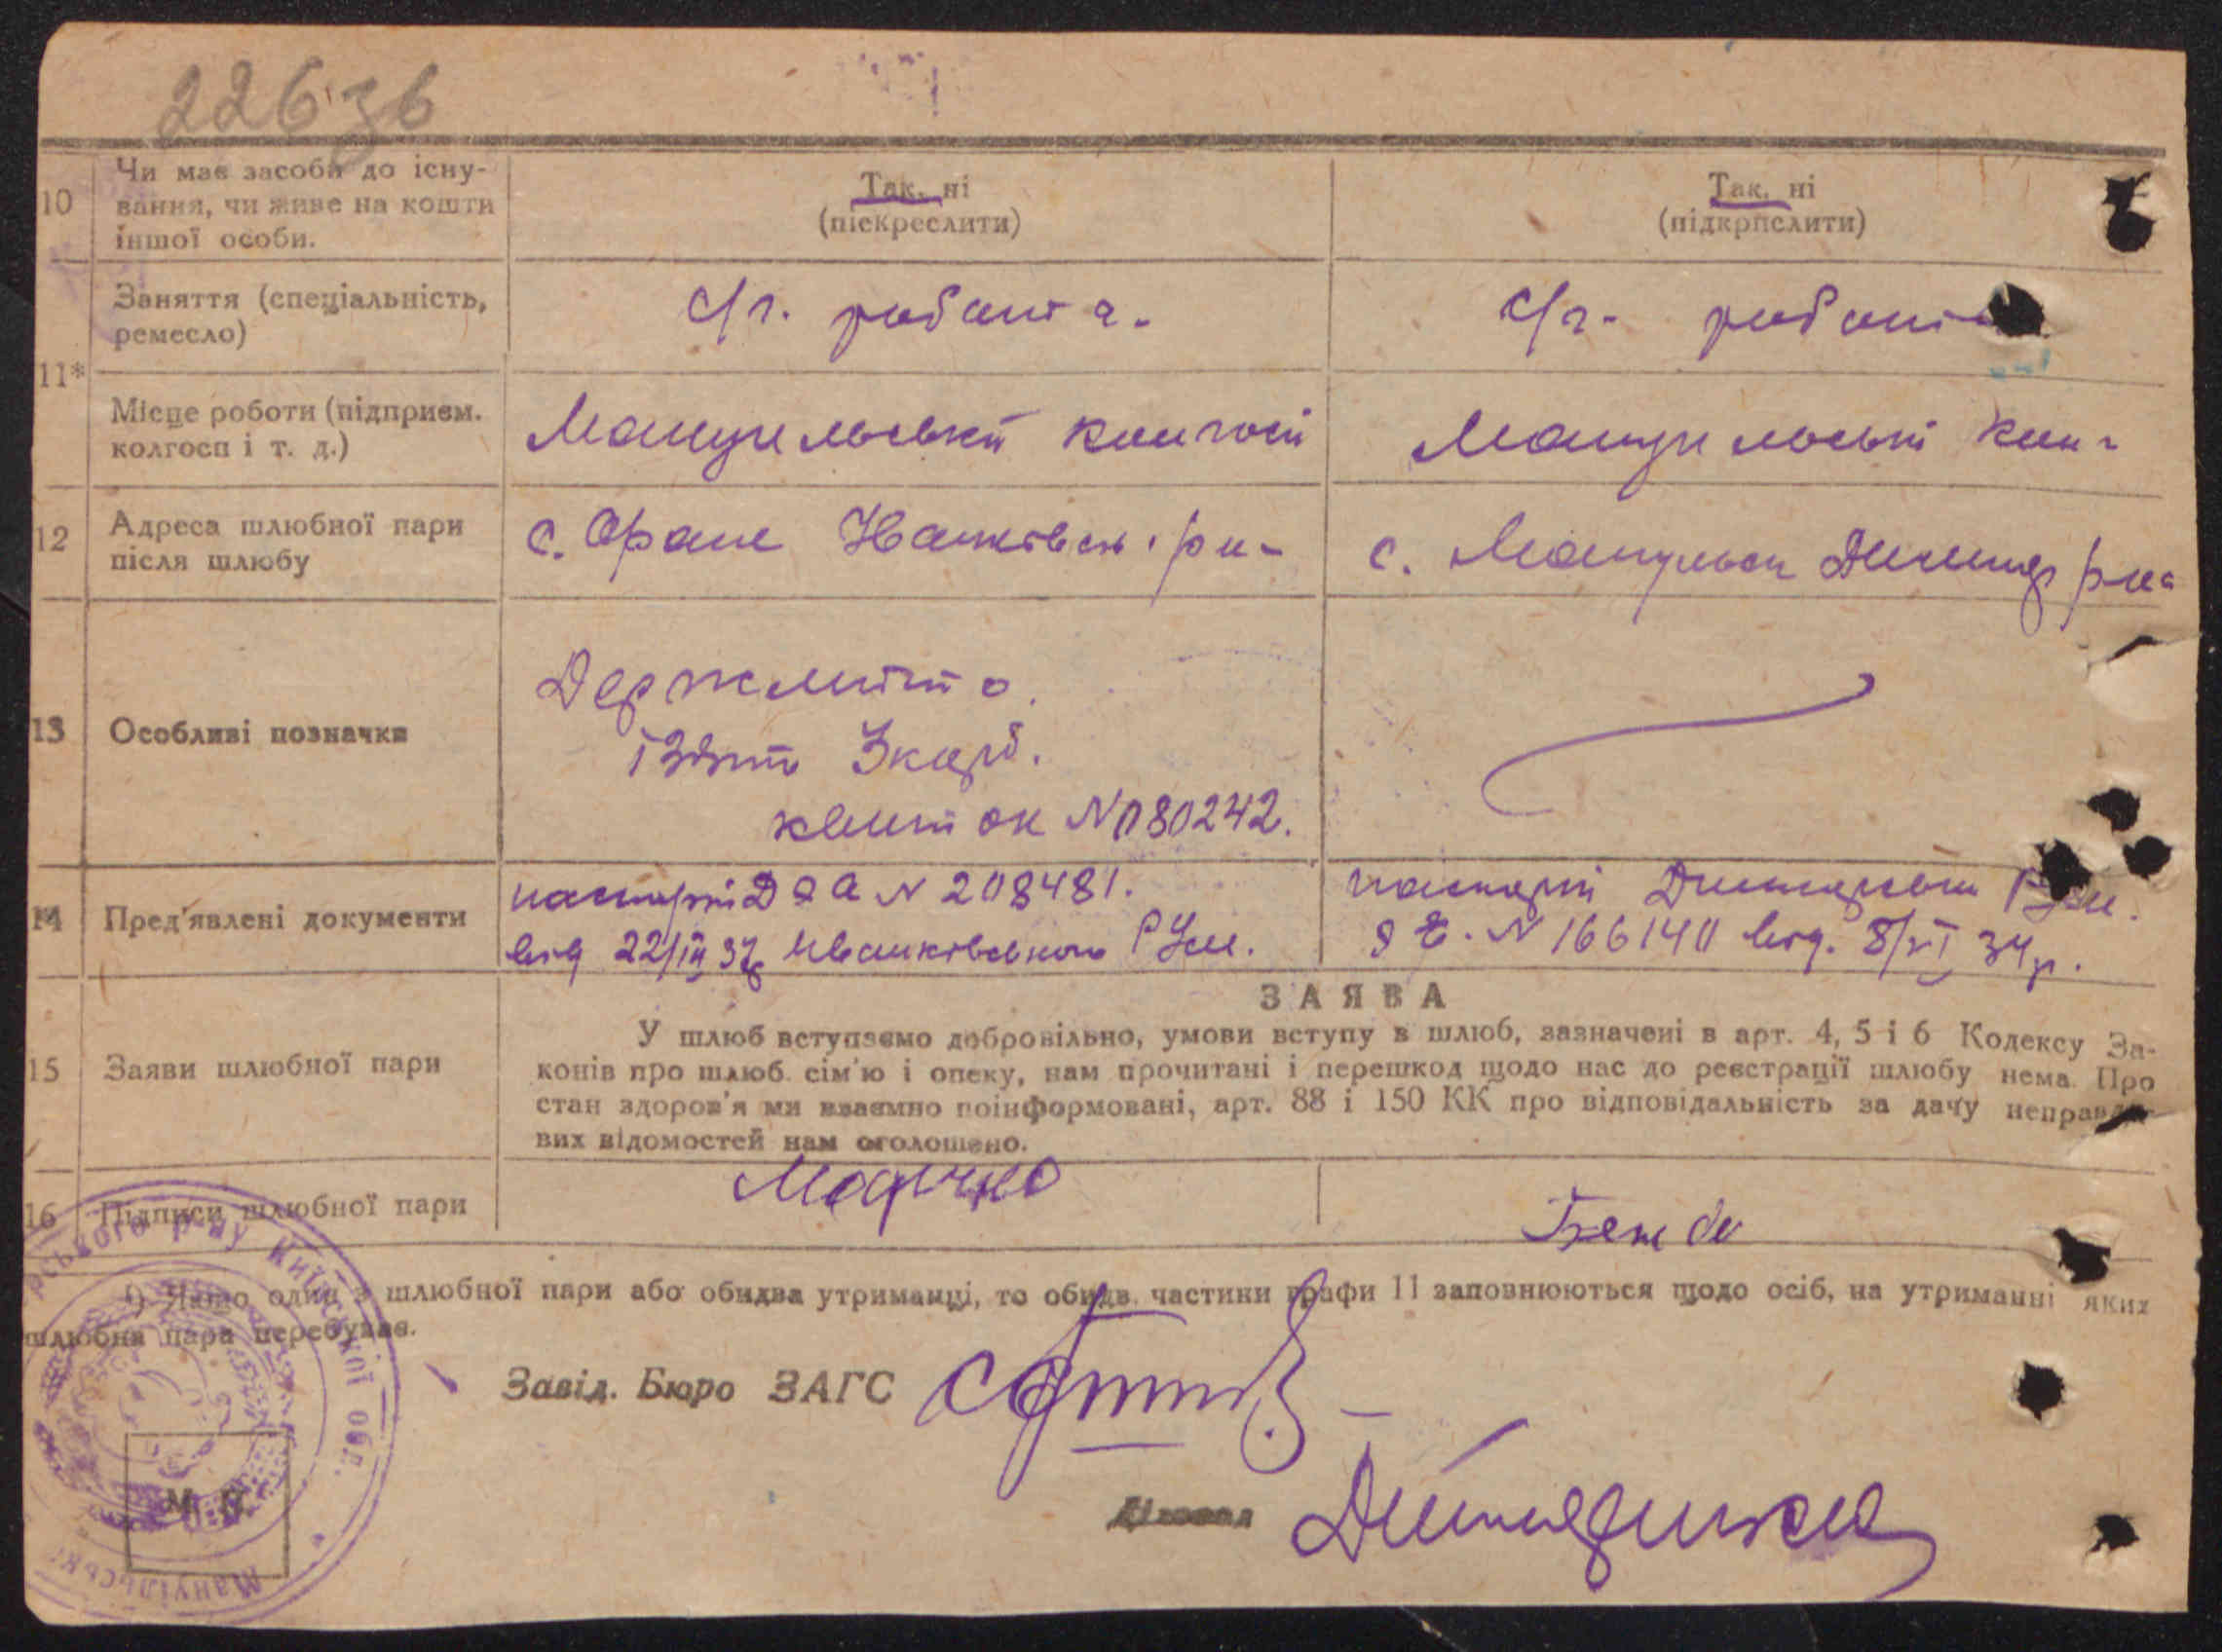 226зв
10
Чи має засоби до існу-
вання, чи живе на кошти
іншої особи.
Так. ні
(піскреслити)
Так. ні
(підкрпслити)
11*
Заняття (спеціальність,
ремесло)
с/г. робота.
с/г. робот
Місце роботи (підприєм.
колгосп і т. д.)
Мануильський колгосп
Мануильськ кол-г
12
Адреса шлюбної пари
після шлюбу
с. Оране Іванківськ. р-н-
с. Мануильськ Димер р-на
13
Особливі позначки
Держмито
карб.
квиток N 080242.
14
Пред'явлені документи
паспорт N 208481.
від 22/III 37р Иванковського РУм.
паспорт Димерськ РУм.
N 166140 від. 8/VI 34р.
15
Заяви шлюбної пари
ЗАЯВА
У шлюб вступаємо добровільно, умови вступу в шлюб, зазначені в арт. 4, 5 і 6 Кодексу За-
конів про шлюб. сім'ю і опеку, нам прочитані і перешкод щодо нас до реєстрації шлюбу нема. Про
стан здоров'я ми взаємно поінформовані, арт. 88 і 150 КК про відповідальність за дачу неправди-
вих відомостей нам оголошено.
16
Підписи шлюбної пари
*) Якщо один з шлюбної пари або обидва утриманці, то обидв. частини графи 11 заповнюються щодо осіб, на утриманні яких
шлюбна пара перебуває.
Завід. Бюро ЗАГС
Діловод
М. П.
ського р-ну Київської обл.
Мануїльськ